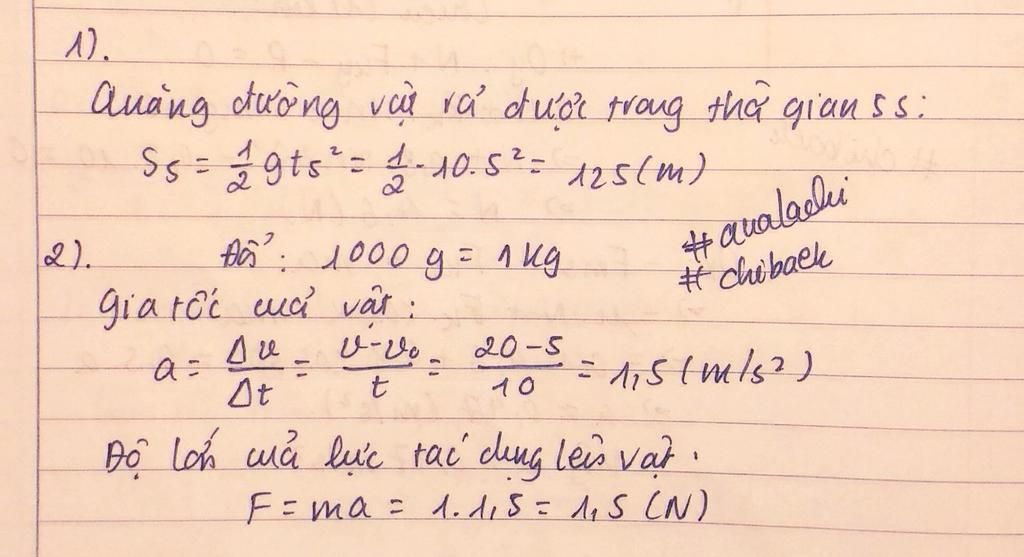 1).
Quãng đường vật rơi được trong thời gian 5s:
S₅ = 1/2 gt₅² = 1/2 . 10. 5² = 125 (m)
#aualachi
2). Đổi: 1000 g = 1 kg
#chibaek
Gia tốc của vật:
a = Δv/Δt = v-v₀/t = 20-5/10 = 1,5 (m/s²)
Độ lớn của lực tác dụng lên vật.
F = ma = 1. 1,5 = 1,5 (N)